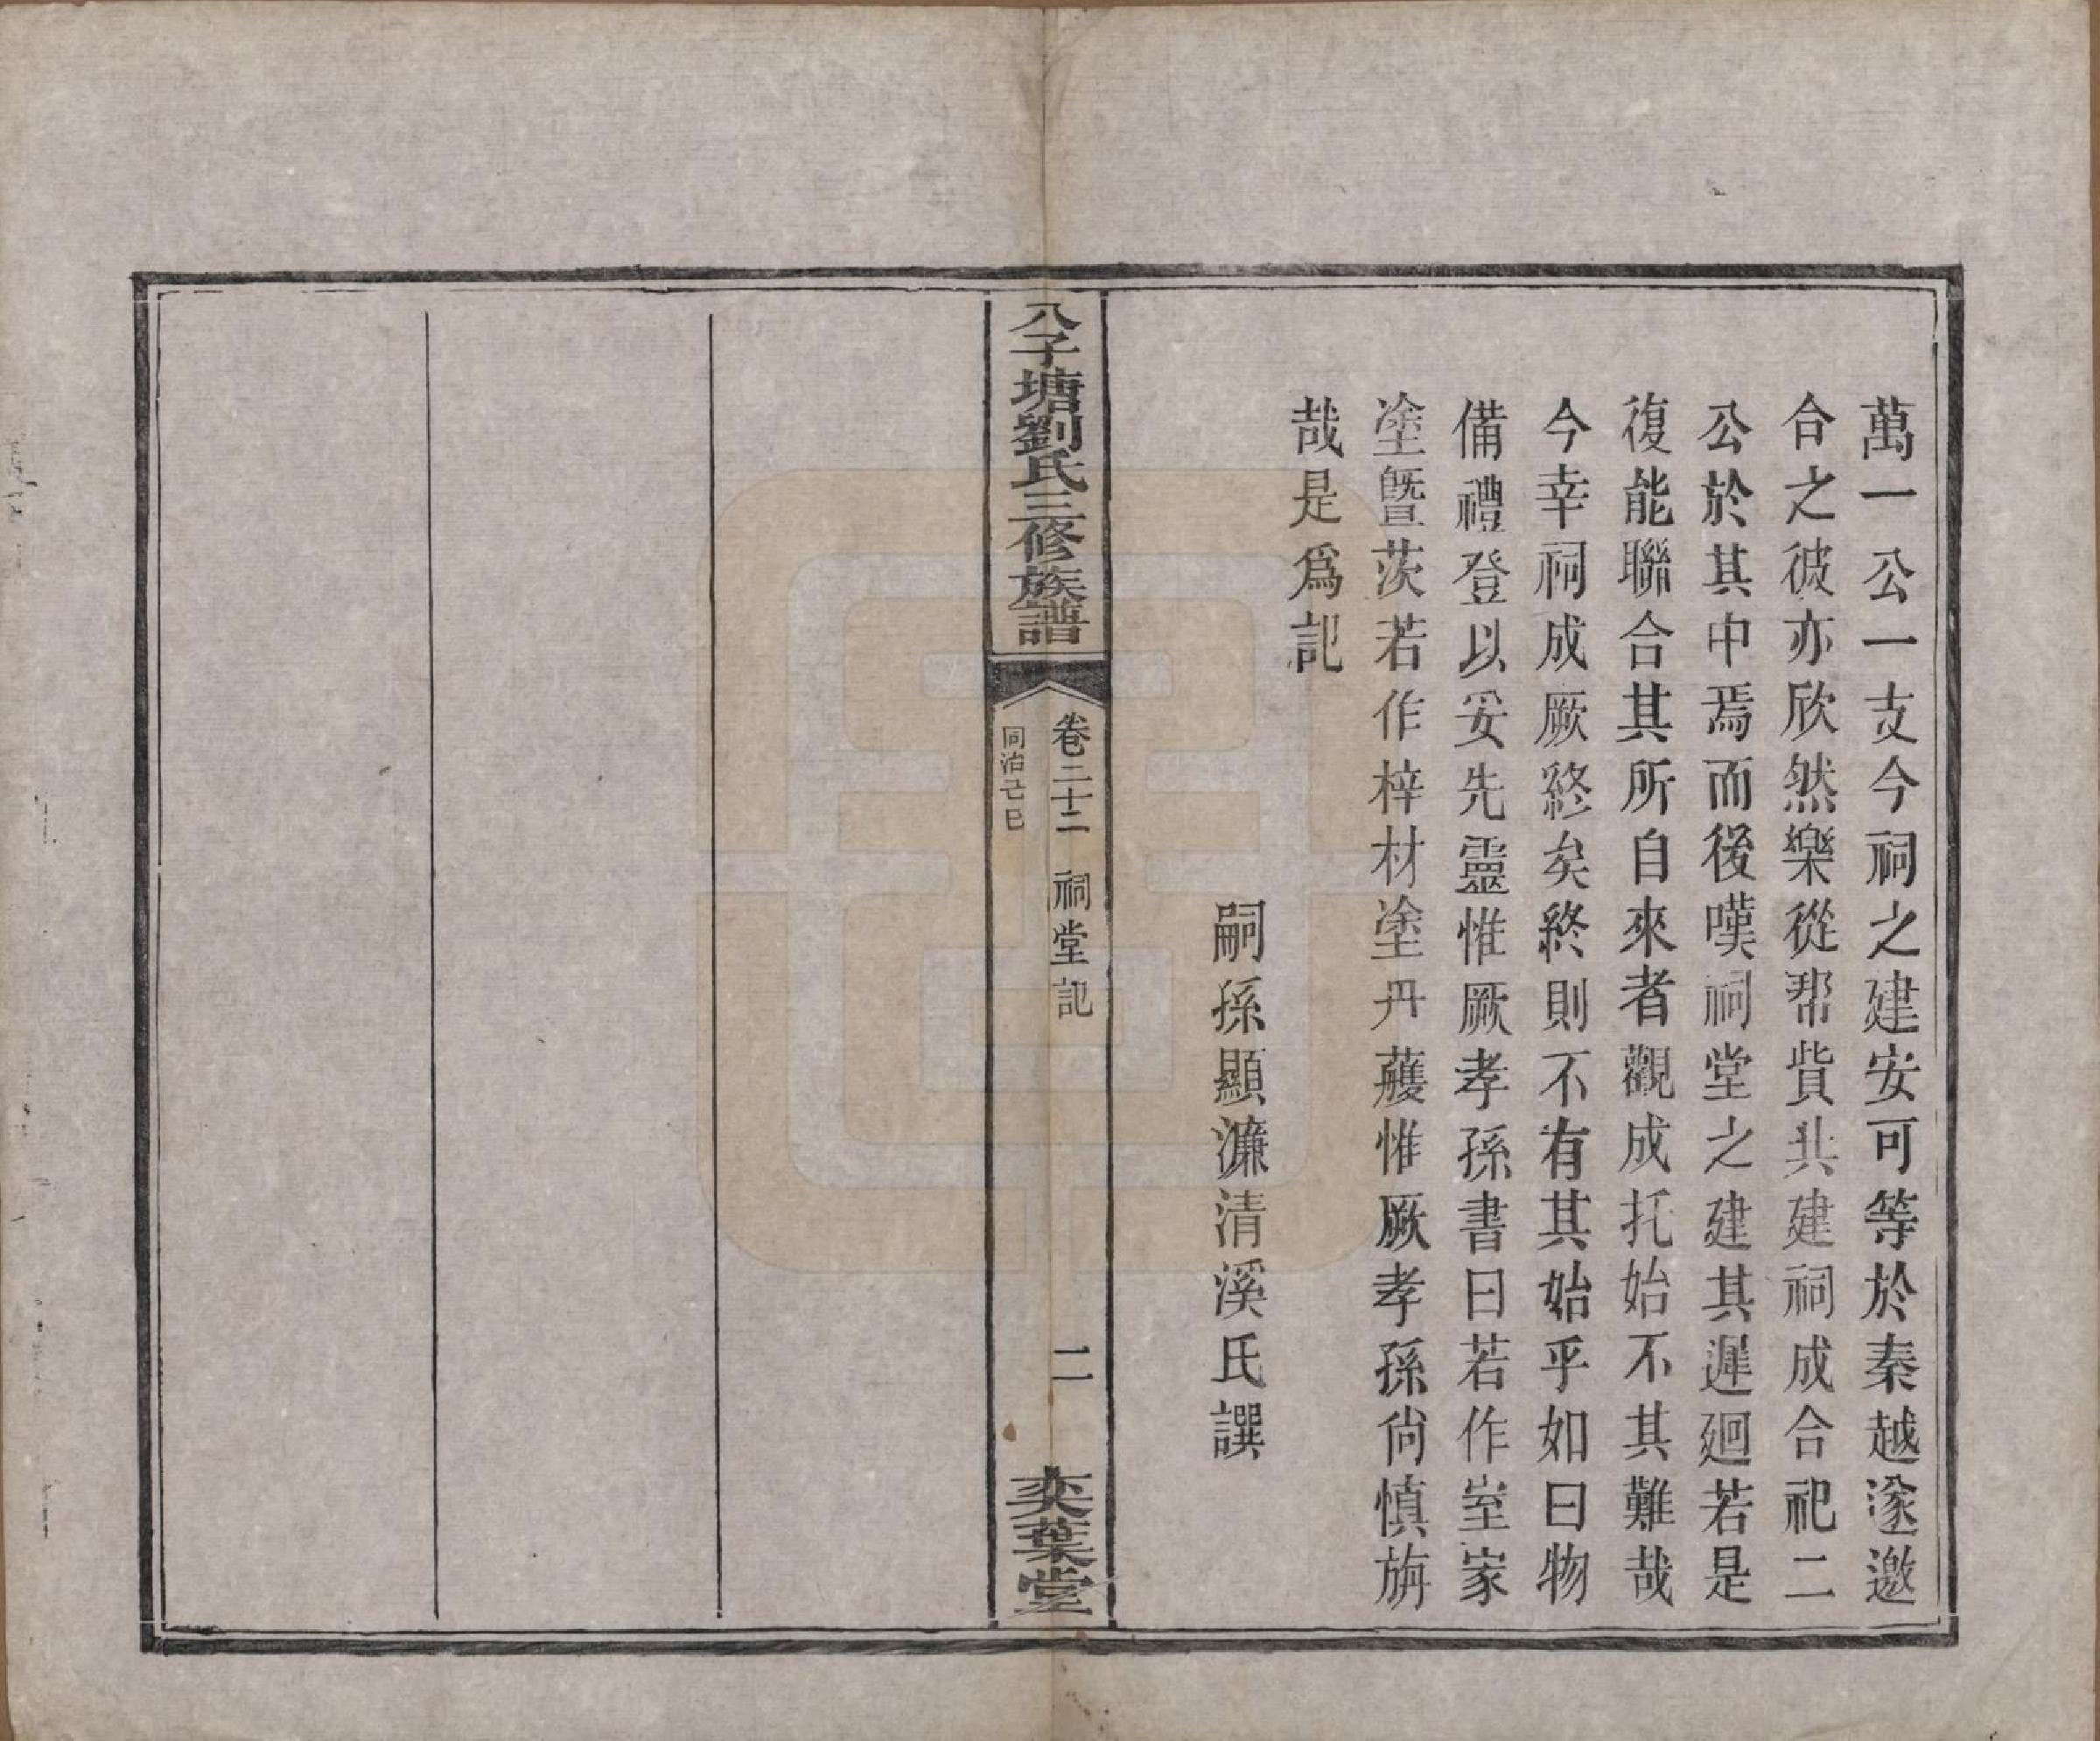 萬一公一支今祠之建安可等於秦越遂邀
合之彼亦欣然樂從帮貲共建祠成合祀二
公於其中焉而後嘆祠堂之建其遲廻若是
復能聯合其所自來者觀成托始不其難哉
今幸祠成厥終矣終則不有其始乎如曰物
備禮登以妥先靈惟厥孝孫書曰若作室家
塗塈茨若作梓材塗丹雘惟厥孝孫尙慎旃
哉是爲記
嗣孫顯濂清溪氏譔
八子塘劉氏三修族譜
卷二十二 祠堂記
二
同治己巳
奕葉堂